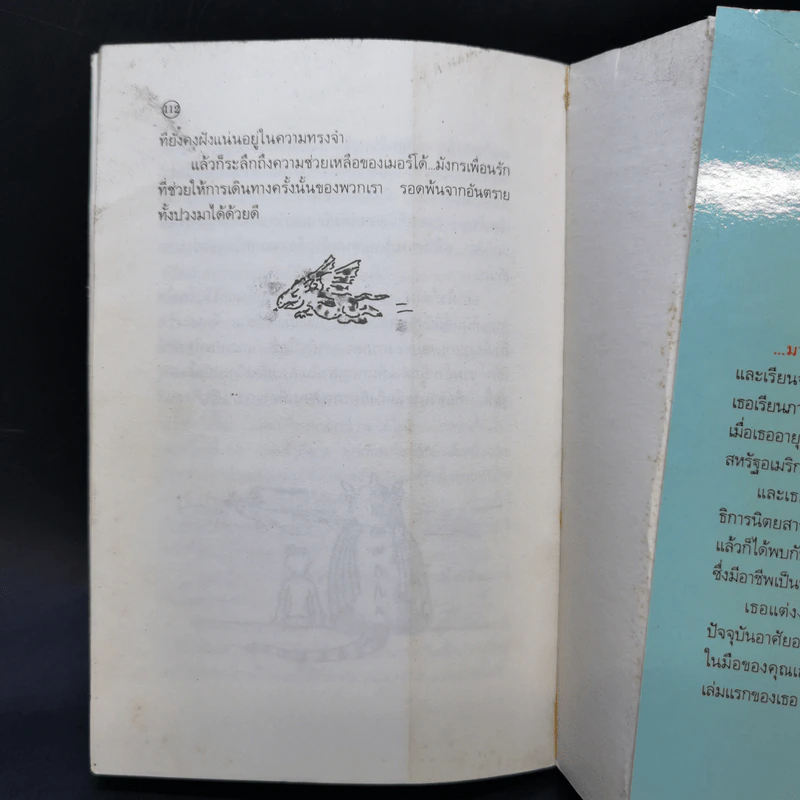 112
ที่ยังคงฝังแน่นอยู่ในความทรงจำ
แล้วก็ระลึกถึงความช่วยเหลือของเมอร์โด้...มังกรเพื่อนรัก
ที่ช่วยให้การเดินทางครั้งนั้นของพวกเรา รอดพ้นจากอันตราย
ทั้งปวงมาได้ด้วยดี
...มา
และเรียนจ
เธอเรียนภา
เมื่อเธออายุ
สหรัฐอเมริก
และเธ
ธิการนิตยสา
แล้วก็ได้พบกั
ซึ่งมีอาชีพเป็น
เธอแต่งง
ปัจจุบันอาศัยอ
ในมือของคุณเ
เล่มแรกของเธอ